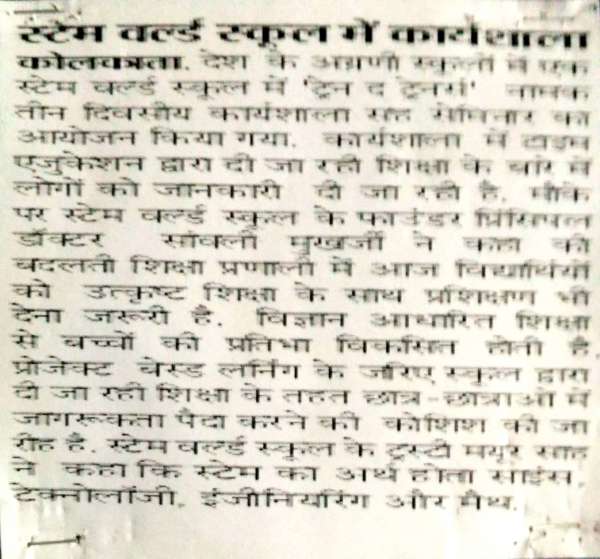 स्टेम वर्ल्ड स्कूल में कार्यशाला
कोलकत्ता. देश के अग्रणी स्कूलों में एक
स्टेम वर्ल्ड स्कूल में 'ट्रेन द ट्रेनर्स' नामक
तीन दिवसीय कार्यशाला सह सेमिनार का
आयोजन किया गया. कार्यशाला में टाइम
एजुकेशन द्वारा दी जा रही शिक्षा के बारे में
लोगों को जानकारी दी जा रही है. मौके
पर स्टेम वर्ल्ड स्कूल के फाउंडर प्रिंसिपल
डॉक्टर सांवली मुखर्जी ने कहा की
बदलती शिक्षा प्रणाली में आज विद्यार्थियों
को उत्कृष्ट शिक्षा के साथ प्रशिक्षण भी
देना जरूरी है. विज्ञान आधारित शिक्षा
से बच्चों की प्रतिभा विकसित होती है
प्रोजेक्ट वेस्ड लर्निंग के जरिए स्कूल द्वारा
दी जा रही शिक्षा के तहत छात्र-छात्राओं में
जागरूकता पैदा करने की कोशिश की जा
रीह है. स्टेम वर्ल्ड स्कूल के ट्रस्टी मयूर साह
ने कहा कि स्टेम का अर्थ होता साइंस,
टेक्नोलॉजी, इंजीनियरिंग और मैथ.